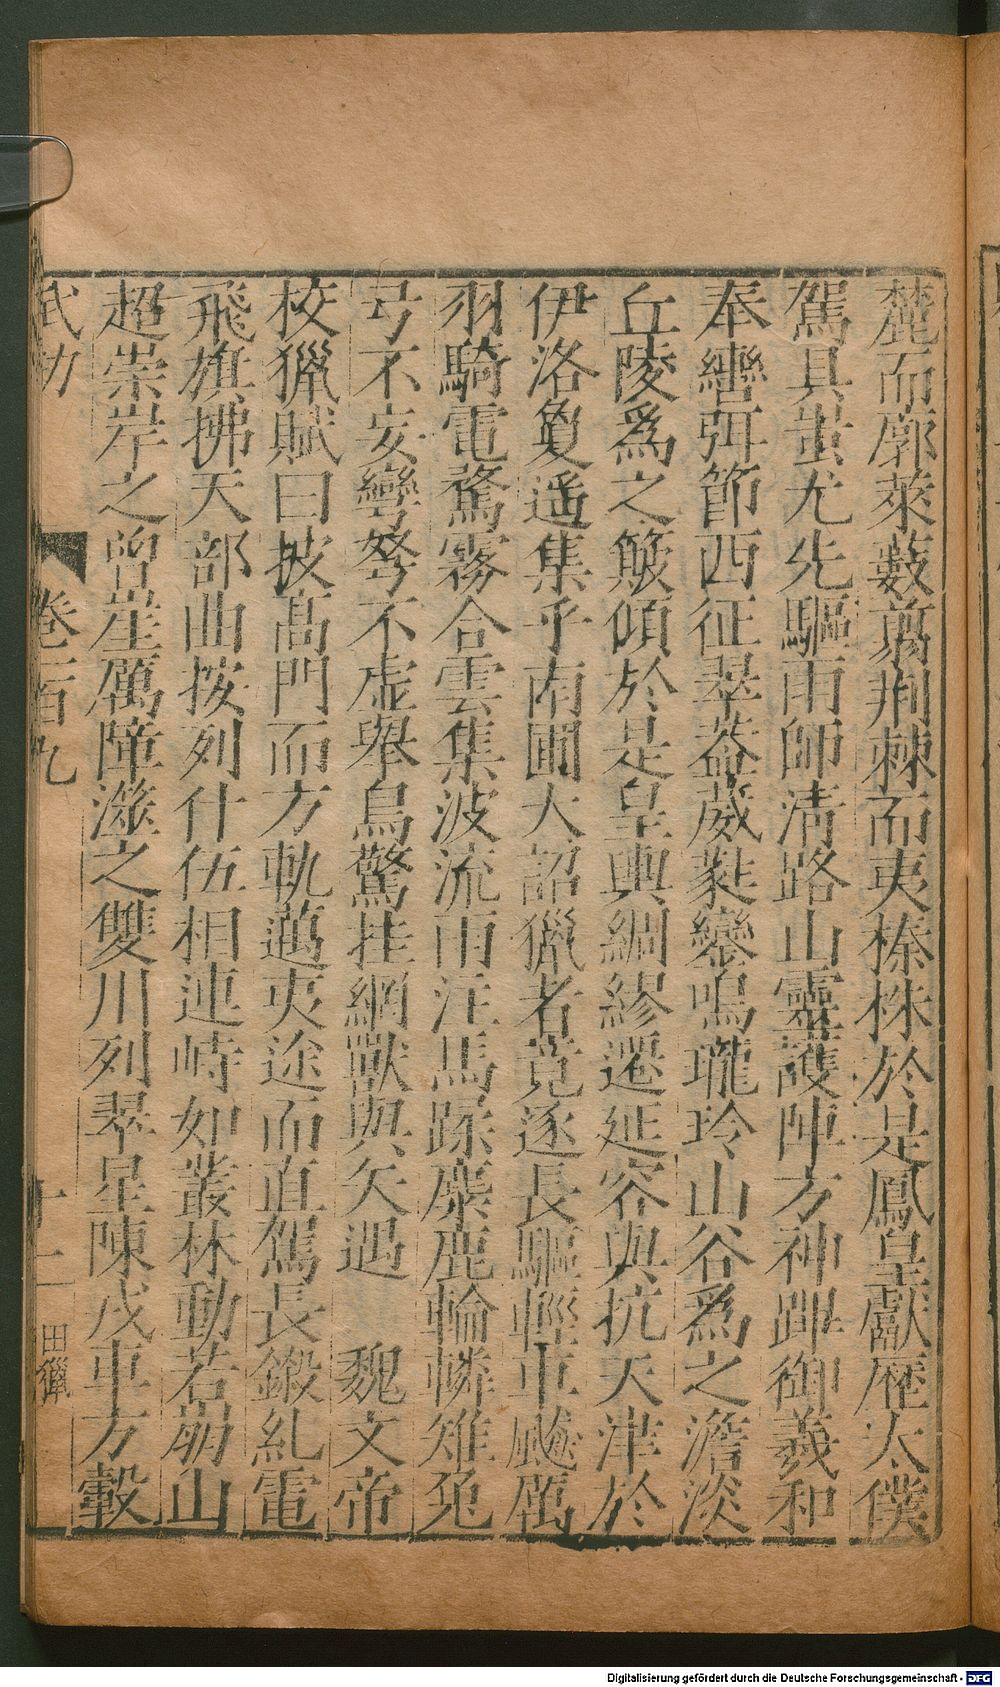 麓而廓萊藪翦荆棘而夷榛株於是鳳皇獻歷太僕
駕具蚩尤先驅雨師清路山靈護陣方神蹕御羲和
奉轡弭節西征翠蓋葳蕤鑾鳴瓏玲山谷爲之澹淡
丘陵爲之簸傾於是皇輿綢繆遷延容與抗天津於
伊洛敻遥集乎南圃大詔獵者竟逐長驅輕車飈厲
羽騎電騖霧合雲集波流雨注馬蹂麋鹿輪轔雉兔
弓不妄彎弩不虚舉鳥驚挂網獸與矢遇　魏文帝
校獵賦曰披高門而方軌邁夷途而直駕長鎩糺電
飛旗拂天部曲按列什伍相連峙如叢林動若崩山
超崇岸之曾崖厲障澨之雙川列翠星陳戎車方轂
武功　卷一百九　十二　田獵
Digitalisierung gefördert durch die Deutsche Forschungsgemeinschaft - DFG